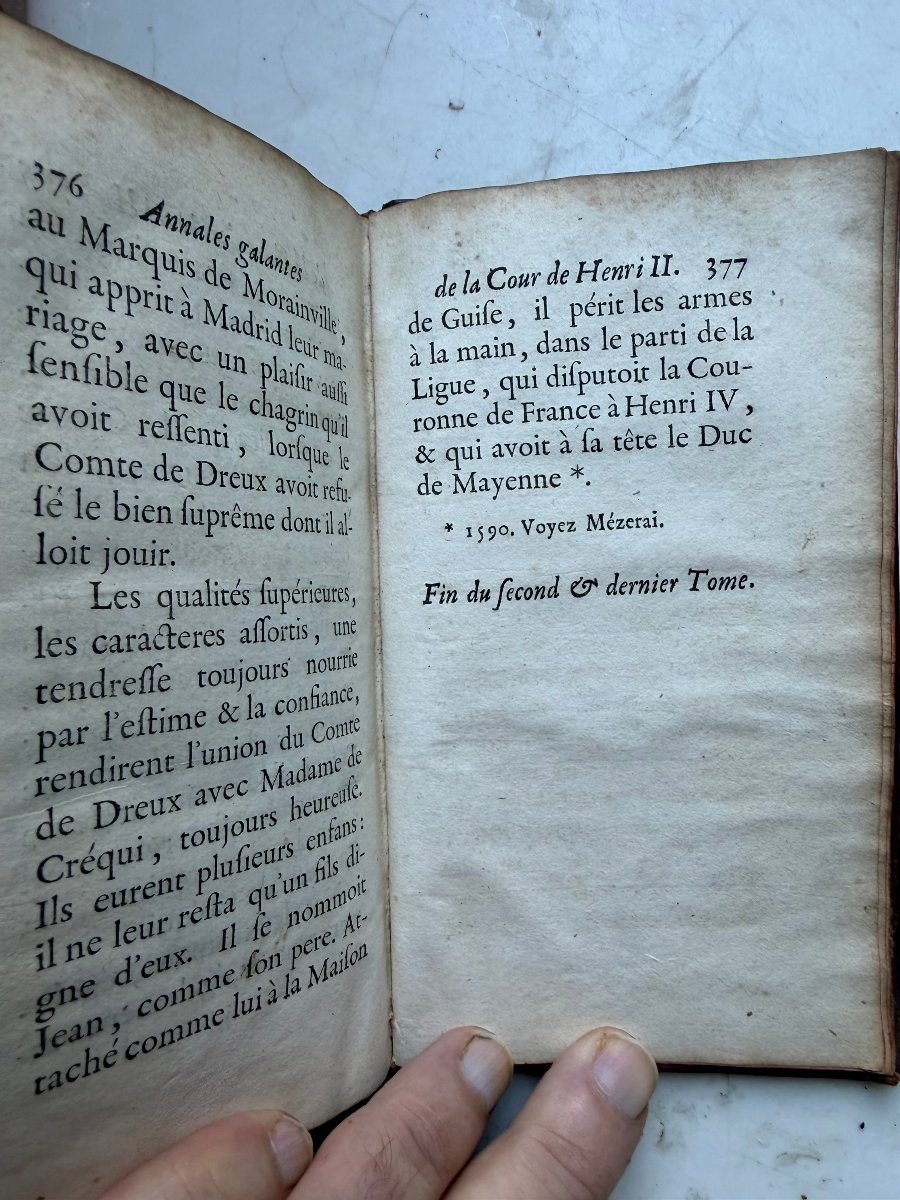 376
Annales galantes
au Marquis de Morainville,
qui apprit à Madrid leur ma-
riage, avec un plaiſir auſſi
ſenſible que le chagrin qu'il
avoit reſſenti, lorſque le
Comte de Dreux avoit refu-
ſé le bien ſuprême dont il al-
loit jouir.
Les qualités ſupérieures,
les caracteres aſſortis, une
tendreſſe toujours nourrie
par l'eſtime & la confiance,
rendirent l'union du Comte
de Dreux avec Madame de
Créqui, toujours heureuſe.
Ils eurent pluſieurs enfans:
il ne leur reſta qu'un fils di-
gne d'eux. Il ſe nommoit
Jean, comme ſon pere. At-
taché comme lui à la Maiſon
de la Cour de Henri II. 377
de Guiſe, il périt les armes
à la main, dans le parti de la
Ligue, qui diſputoit la Cou-
ronne de France à Henri IV,
& qui avoit à ſa tête le Duc
de Mayenne *.
* 1590. Voyez Mézerai.
Fin du ſecond & dernier Tome.